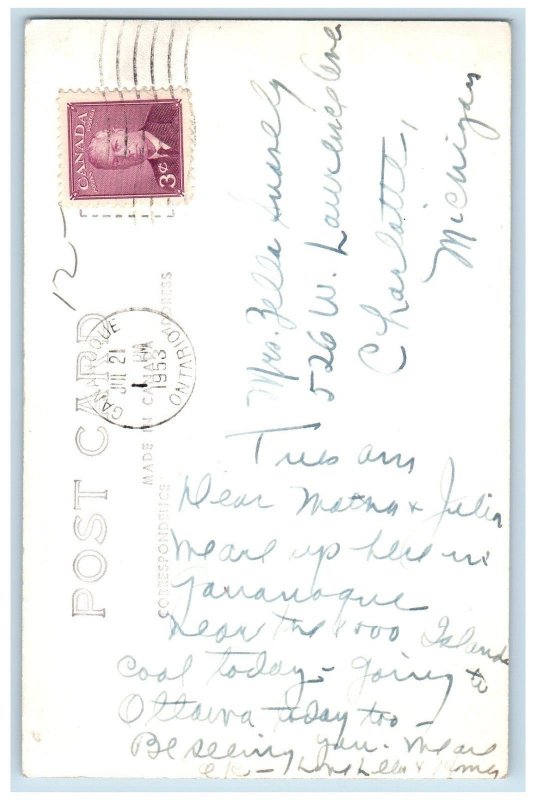 CANADA
3¢
POST CARD
MADE IN CANADA
CORRESPONDENCE
ADDRESS
GANANOQUE
JUL 21
1 PM
1953
ONTARIO
12-
Mrs. Zella
526 W. Lawrence Ave
Charlotte,
Michigan
Tues am
Dear Mama & Julia
We are up here in
Gananoque
near the 1000 Islands
Cool today - going to
Ottawa today too -
Be seeing you. We are